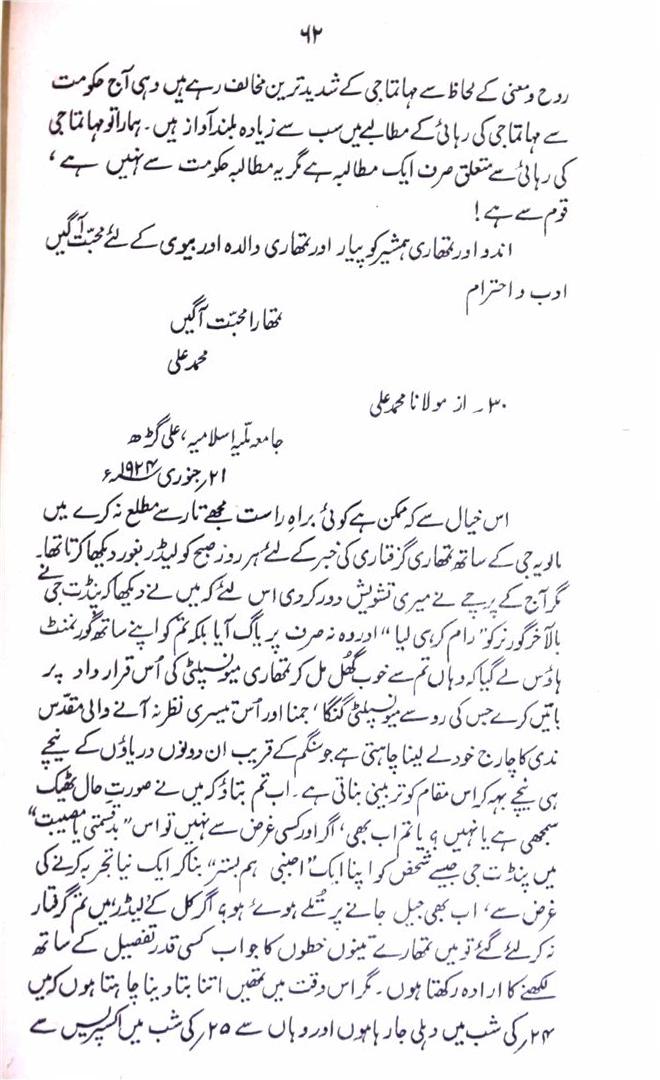 ۶۲
روح و معنی کے لحاظ سے مہاتما جی کے شدید ترین مخالف رہے ہیں وہی آج حکومت
سے مہاتما جی کی رہائی کے مطالبے میں سب سے زیادہ بلند آواز ہیں۔ ہمارا تو مہاتما جی
کی رہائی سے متعلق صرف ایک مطالبہ ہے مگر یہ مطالبہ حکومت سے نہیں ہے،
قوم سے ہے!
اندو اور تمھاری ہمشیر کو پیار اور تمھاری والدہ اور بیوی کے لئے محبّت آگیں
ادب و احترام
تمھارا محبّت آگیں
محمد علی
۳۰۔ از مولانا محمد علی
جامعہ ملّیہ اسلامیہ، علی گڑھ
۲۱؍ جنوری ۱۹۲۴ء
اس خیال سے کہ ممکن ہے کوئی براہِ راست مجھے تار سے مطلع نہ کرے میں
مالویہ جی کے ساتھ تمھاری گرفتاری کی خبر کے لئے ہر روز صبح کو لیڈر بغور دیکھا کرتا تھا۔
مگر آج کے پرچے نے میری تشویش دور کر دی اس لئے کہ میں نے دیکھا کہ پنڈت جی نے
بالآخر گورنر کو ”رام کر ہی لیا“ اور وہ نہ صرف پریاگ آیا بلکہ تم کو اپنے ساتھ گورنمنٹ
ہاؤس لے گیا کہ وہاں تم سے خوب گھُل مل کر تمھاری میونسپلٹی کی اُس قرار داد پر
باتیں کرے جس کی رو سے میونسپلٹی گنگا، جمنا اور اُس تیسری نظر نہ آنے والی مقدّس
ندی کا چارج خود لے لینا چاہتی ہے جو سنگم کے قریب ان دونوں دریاؤں کے نیچے
ہی نیچے بہہ کر اس مقام کو تربینی بناتی ہے۔ اب تم بتاؤ کہ میں نے صورتِ حال ٹھیک
سمجھی ہے یا نہیں؟ یا تم اب بھی، اگر اور کسی غرض سے نہیں تو اس ”بدقسمتی یا مصیبت“
میں پنڈت جی جیسے شخص کو اپنا ایک ”اجنبی ہم بستر“ بنا کر ایک نیا تجربہ کرنے کی
غرض سے، اب بھی جیل جانے پر تُلے ہوئے ہو؟ اگر کل کے ’لیڈر‘ میں تم گرفتار
نہ کر لئے گئے تو میں تمھارے تینوں خطوں کا جواب کسی قدر تفصیل کے ساتھ
لکھنے کا ارادہ رکھتا ہوں۔ مگر اس وقت میں تمھیں اتنا بتا دینا چاہتا ہوں کہ میں
۲۴؍ کی شب میں دہلی جا رہا ہوں اور وہاں سے ۲۵؍ کی شب میں اکسپریس سے